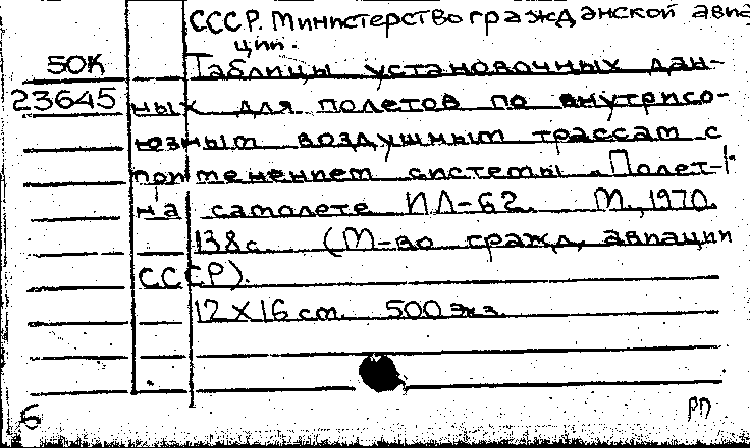 СССР. Министерство гражданской авиа
ции.
50К Таблицы установочных дан-
23645 ных для полетов по внутрисо-
юзным воздушным трассам с
применением системы „Полет-1"
на самолете ИЛ-62. М., 1970.
138 с. (М-во гражд. авиации
СССР).
12 X 16 cm. 500 экз.
Б РП